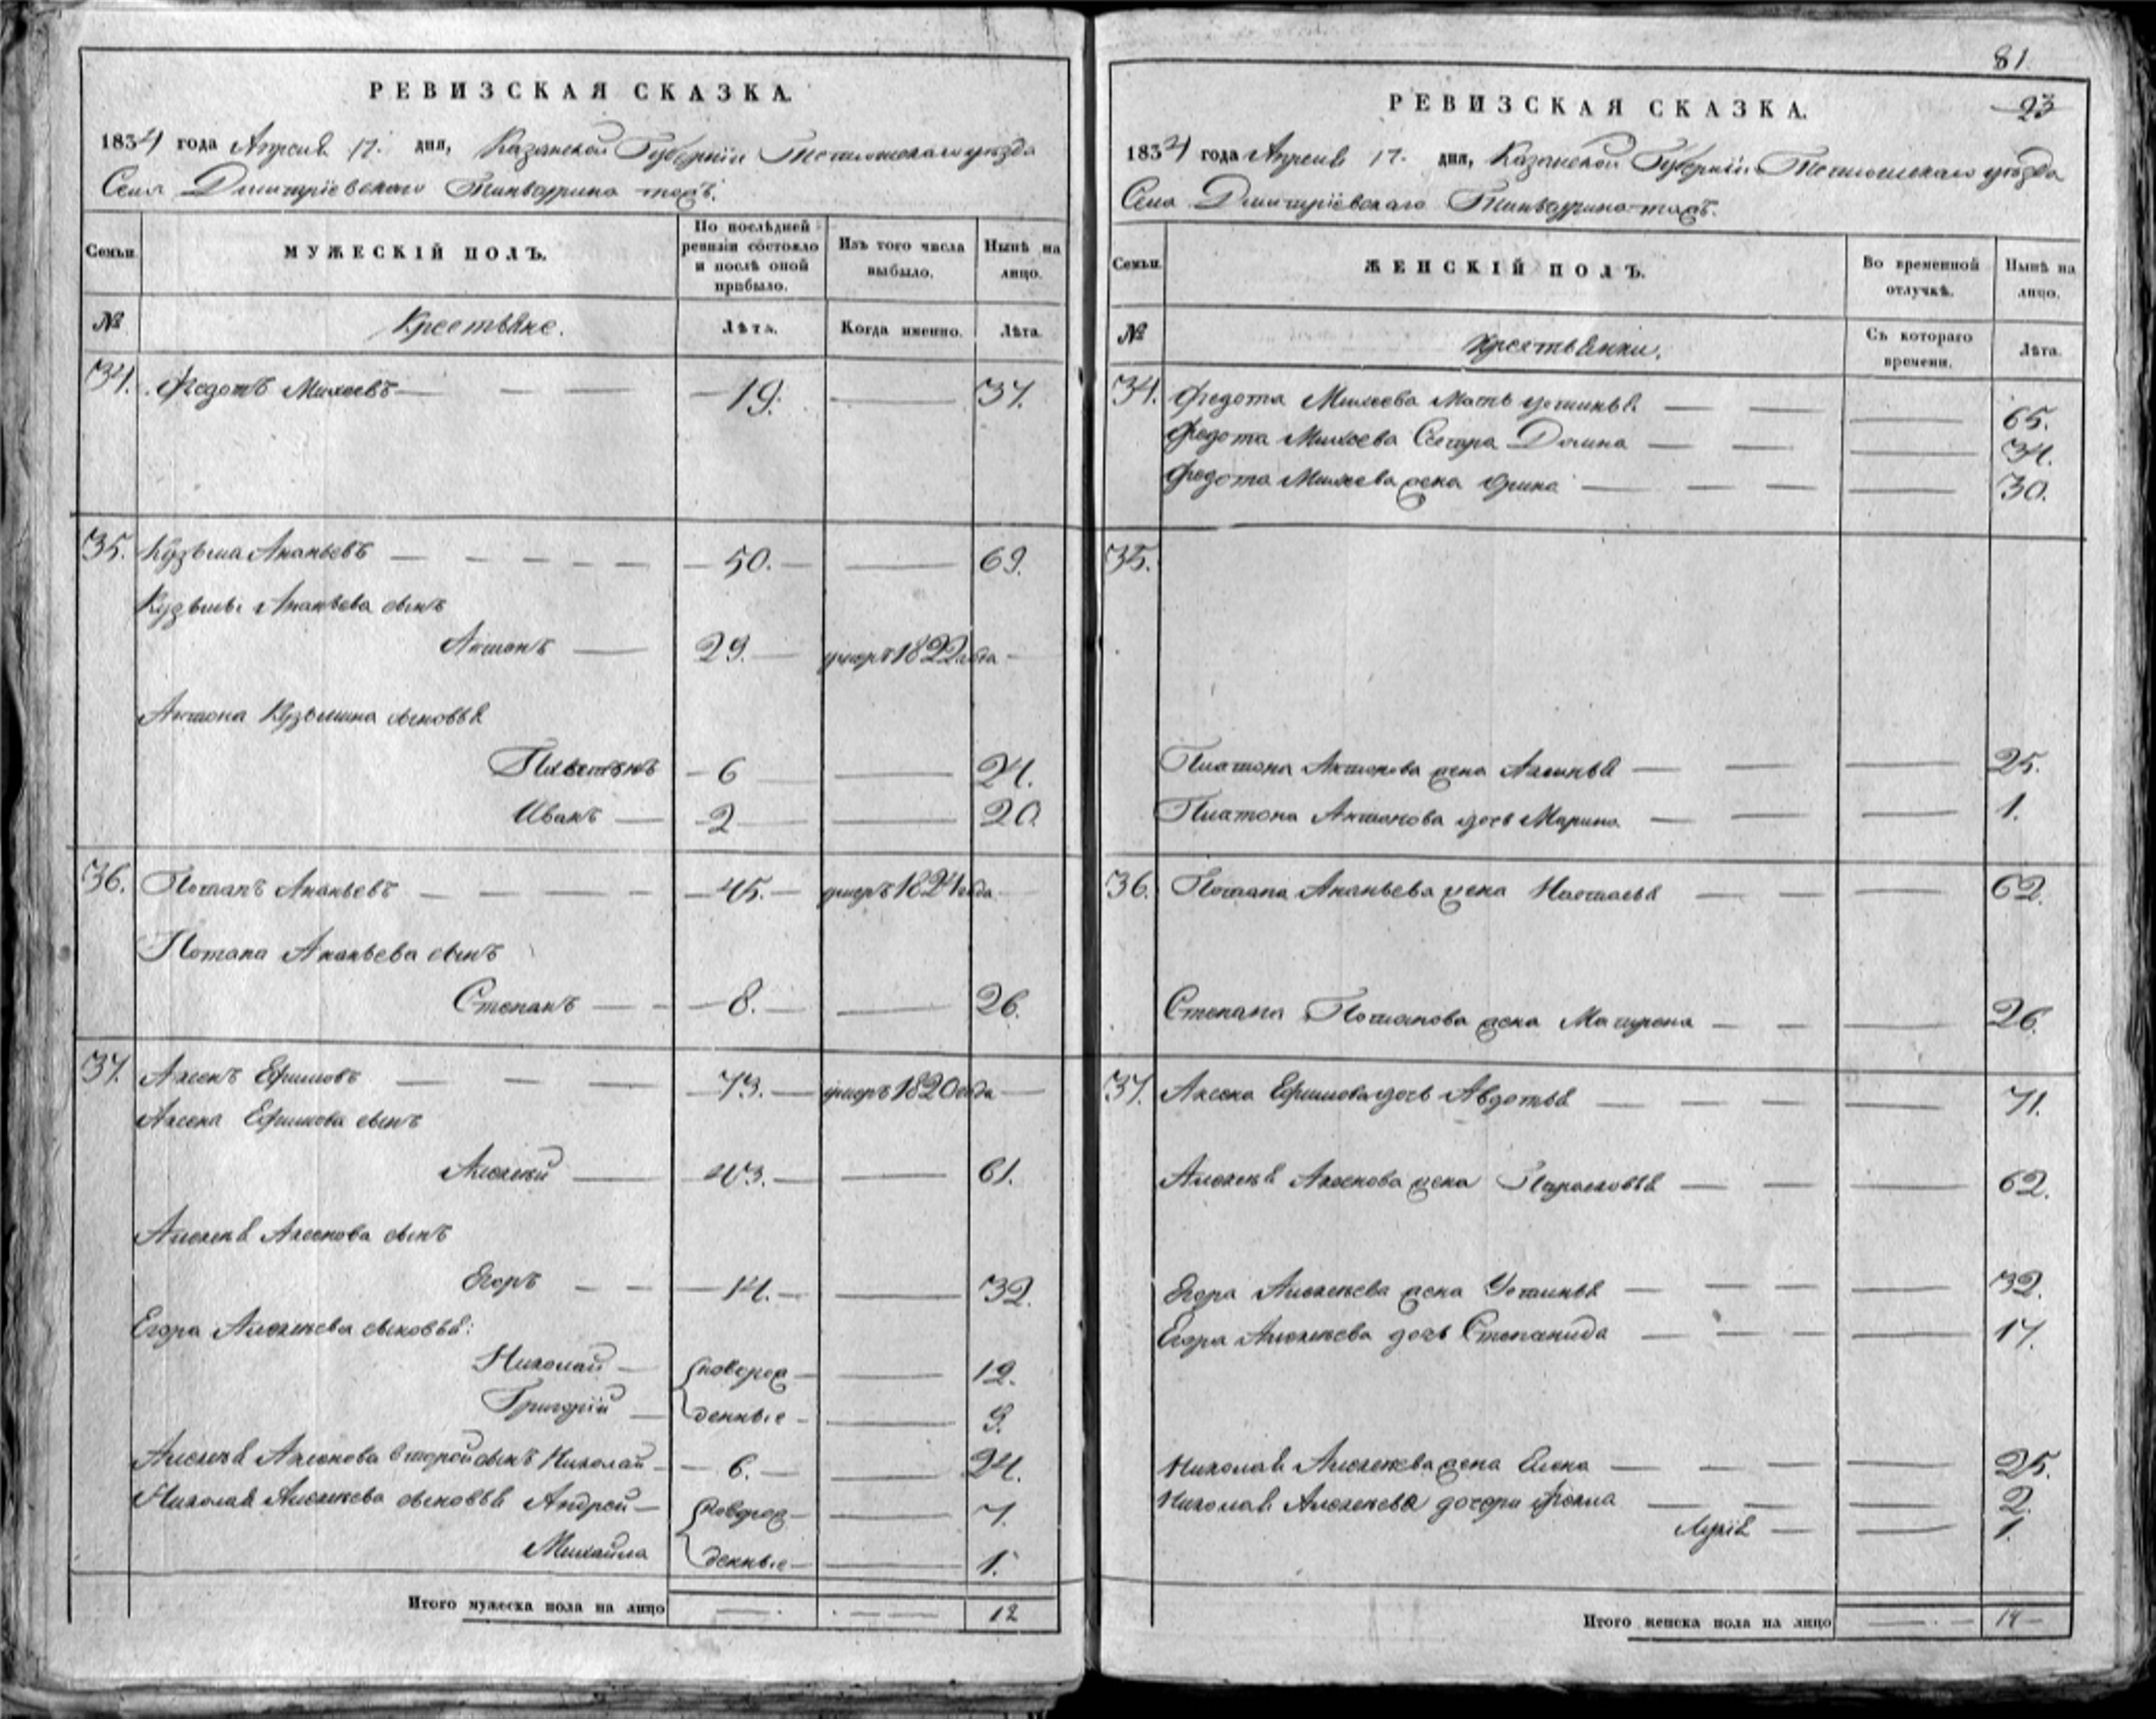 РЕВИЗСКАЯ СКАЗКА.
1834 года Апреля 17. дня, Казанской Губернїи Тетюшскаго уѣзда
Села Дмитрїевскаго
Семьи.
МУЖЕСКІЙ ПОЛЪ.
По послѣдней ревизіи состояло и послѣ оной прибыло.
Изъ того числа выбыло.
Нынѣ на лицо.
№
Крестьяне.
Лѣта.
Когда именно.
Лѣта.
34. Федотъ Михеевъ 19. 37.
35. Кузьма Ананьевъ 50. 69.
Кузьмы Ананьева сынъ
Антонъ 29. умеръ 1822 года
Антона Кузьмина сыновья
Платонъ 6 24.
Иванъ 2 20.
36. Потапъ Ананьевъ 45. умеръ 1824 года
Потапа Ананьева сынъ
Степанъ 8. 26.
37. Аксенъ Ефимовъ 73. умеръ 1820 года
Аксена Ефимова сынъ
Алексей 43. 61.
Алексея Аксенова сынъ
Егоръ 14. 32.
Егора Алексеева сыновья:
Николай новорож 12.
Григорїй денные 9.
Алексея Аксенова второй сынъ Николай 6. 24.
Николая Алексеева сыновья Андрей новорож 7.
Михайла денные 1.
Итого мужеска пола на лицо 12
81
23
РЕВИЗСКАЯ СКАЗКА.
1834 года Апреля 17. дня, Казанской Губернїи Тетюшскаго уѣзда
Села Дмитрїевскаго
Семьи.
ЖЕНСКІЙ ПОЛЪ.
Во временной отлучкѣ.
Нынѣ на лицо.
№
Крестьянки.
Съ котораго времени.
Лѣта.
34. Федота Михеева мать Устинья 65.
Федота Михеева сестра Домна 34.
Федота Михеева жена Ирина 30.
35.
Платона Антонова жена Аксинья 25.
Платона Антонова дочь Марина 1.
36. Потапа Ананьева жена Настасья 62.
Степана Потапова жена Матрена 26.
37. Аксена Ефимова дочь Авдотья 71.
Алексея Аксенова жена Парасковья 62.
Егора Алексеева жена Устинья 32.
Егора Алексеева дочь Степанида 17.
Николая Алексеева жена Елена 25.
Николая Алексеева дочери Фекла 2.
1.
Итого женска пола на лицо 14